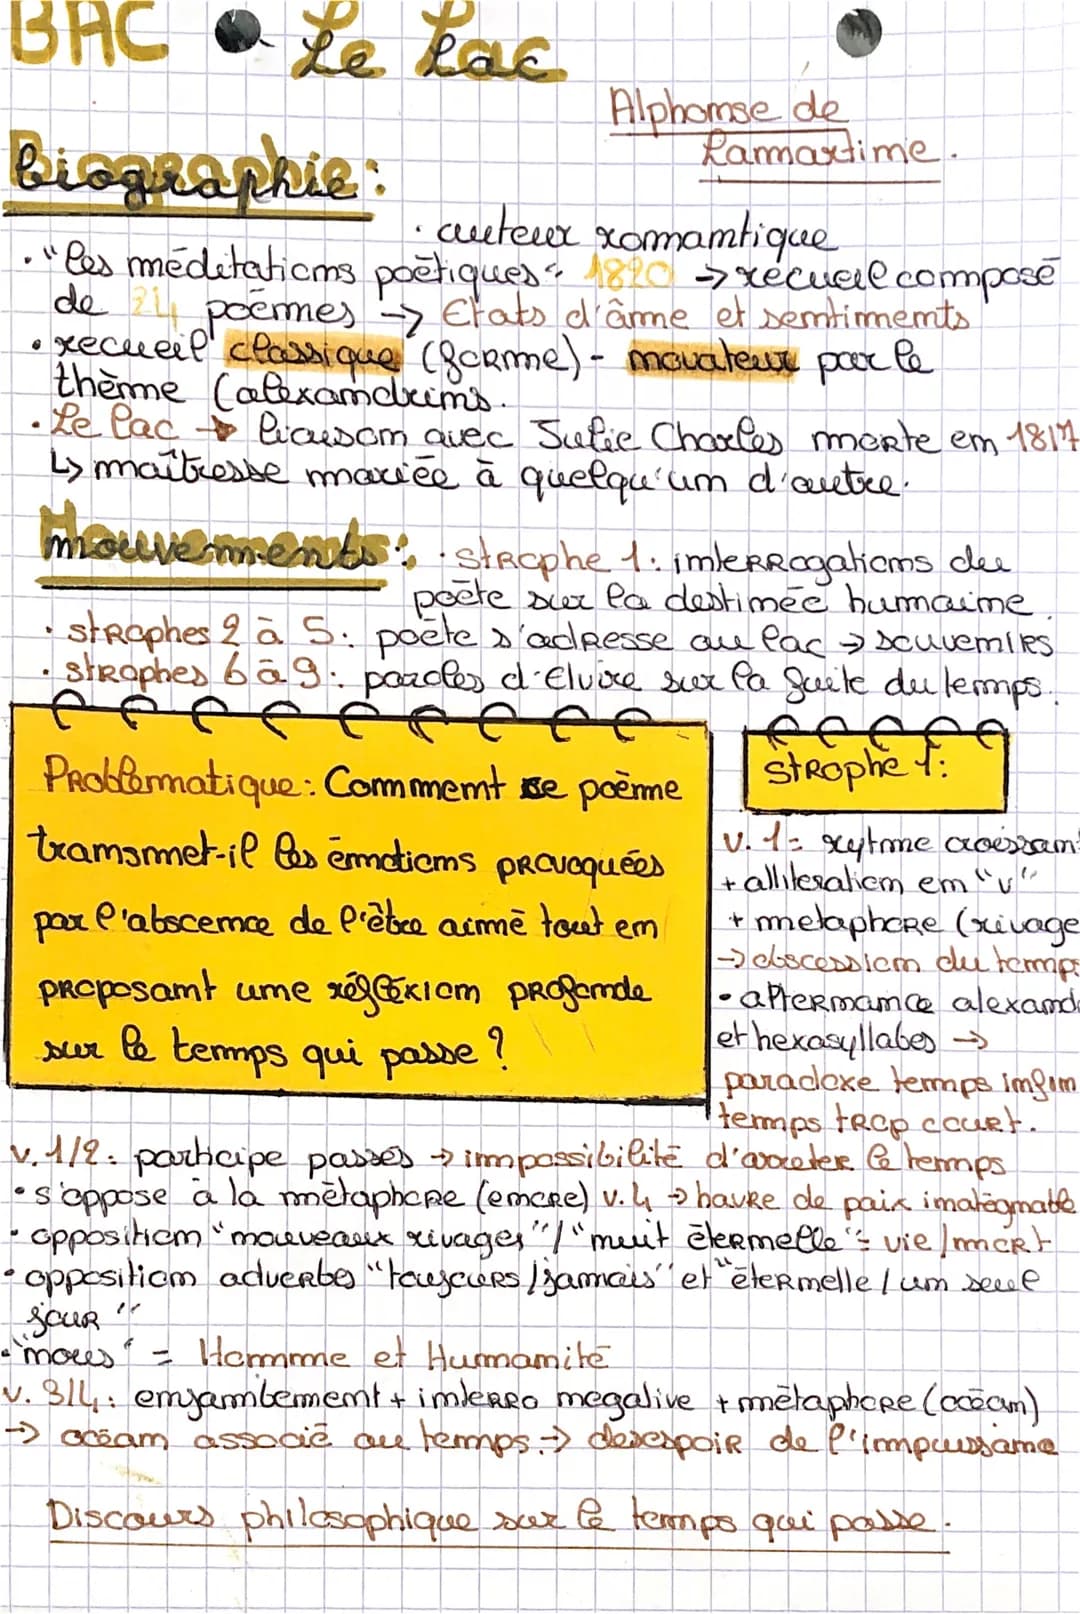 BAC • Le Lac
Alphonse de
Lamartine.
Biographie :
· auteur romantique
· "les méditations poétiques" 1820 → recueil composé
de 24 poèmes → Etats d'âme et sentiments
· recueil classique (forme) - novateur par le
thème (alexandrins.
· Le Lac → liaison avec Julie Charles morte en 1817
↳ maîtresse mariée à quelqu'un d'autre.
Mouvements : · strophe 1 : interrogations du
poète sur la destinée humaine
· strophes 2 à 5 : poète s'adresse au lac → souvenirs
· strophes 6 à 9 : paroles d'Elvire sur la fuite du temps.
Problématique : Comment ce poème
transmet-il les émotions provoquées
par l'abscence de l'être aimé tout en
proposant une réfléxion profonde
sur le temps qui passe ?
strophe 1 :
v. 1 = rytme croissant
+ allitération en "v"
+ métaphore (rivage
→ obscession du temps
· alternance alexand
et hexasyllabes →
paradoxe temps infini
temps trop court.
v. 1/2 : participe passés → impossibilité d'arreter le temps
· s'oppose à la métaphore (encre) v. 4 → havre de paix inatégnable
· opposition "nouveaux rivages" / "nuit éternelle" = vie / mort
· opposition adverbes "toujours / jamais" et "éternelle / un seul
jour"
· "nous" = Homme et Humanité
v. 3/4 : enjambement + interro negative + métaphore (océan)
→ océan associé au temps → desespoir de l'impuissance
Discours philosophique sur le temps qui passe.